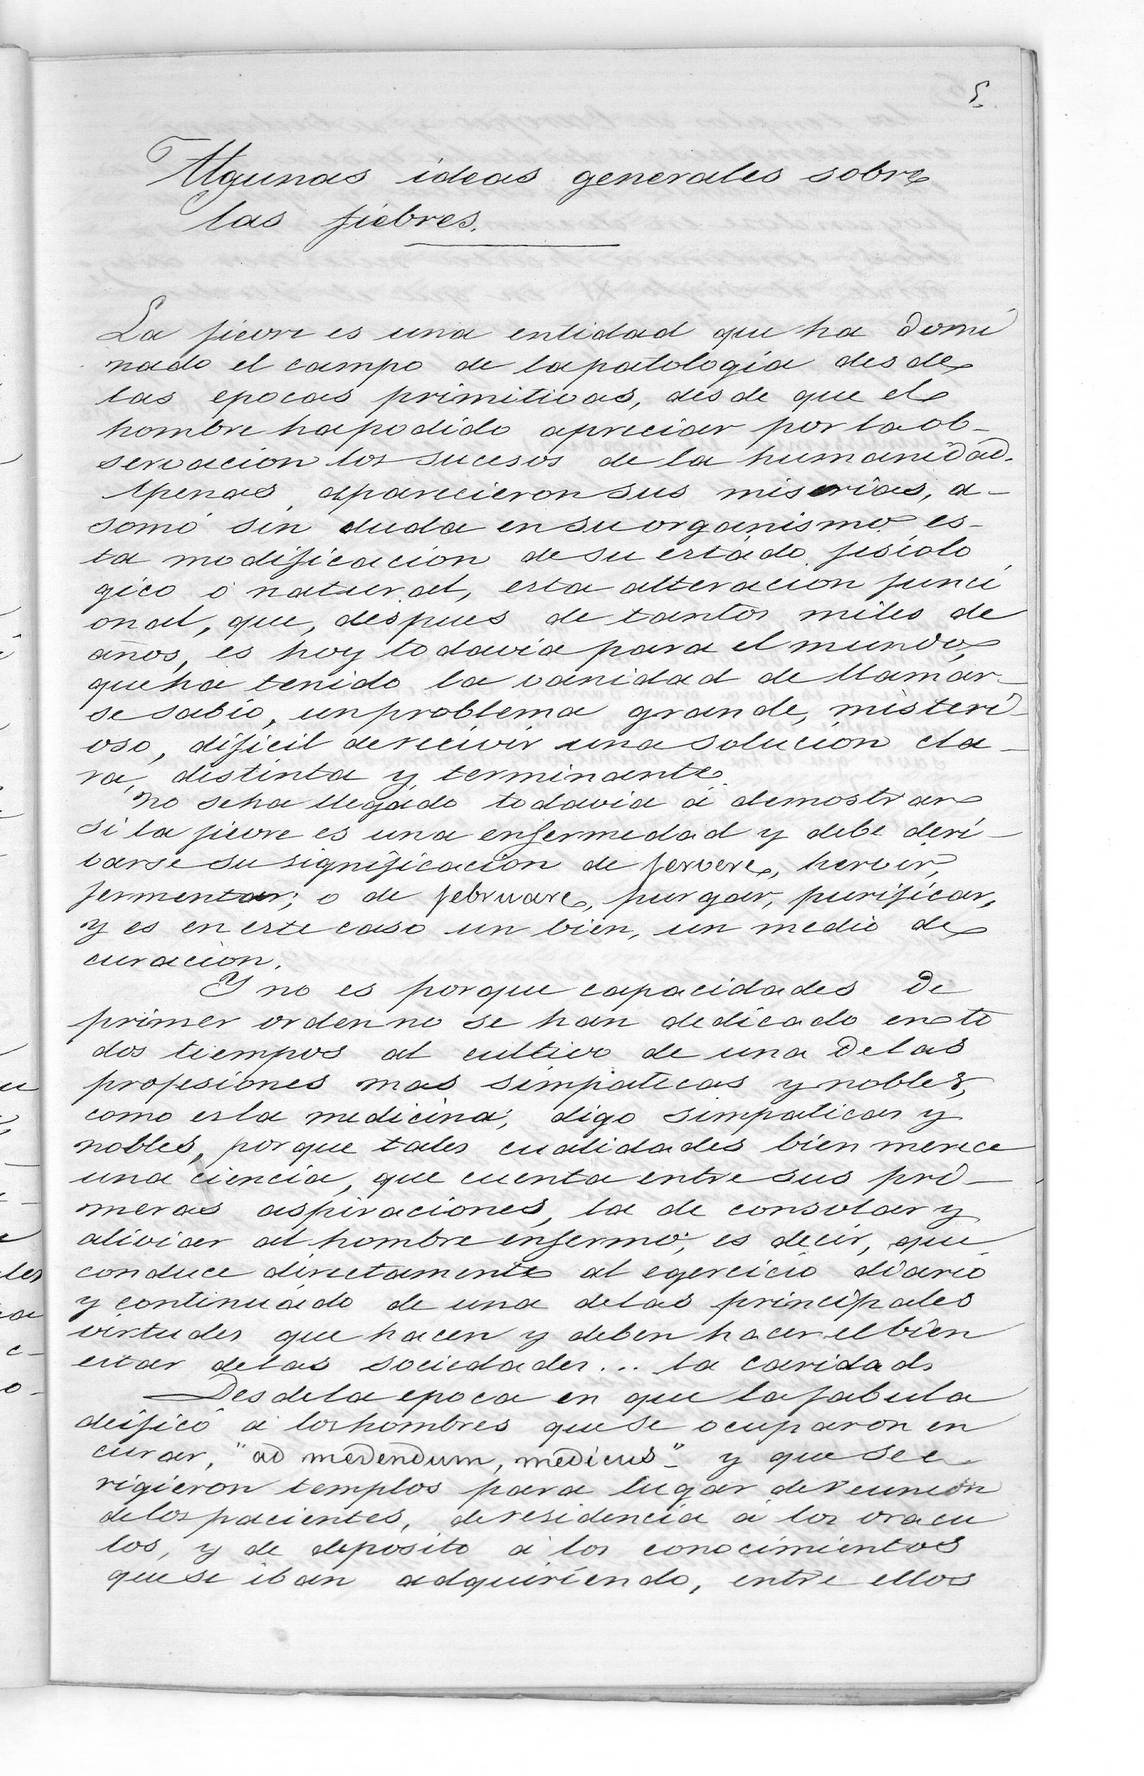 5.
Algunas ideas generales sobre
las fiebres.
La fievre es una entidad que ha domi
nado el campo de la patologia desde
las epocas primitivas, desde que el
hombre ha podido apreciar por la ob-
servacion los sucesos de la humanidad.
Apenas aparecieron sus miserias, a-
somó sin duda en su organismo es-
ta modificacion de su estado fisiolo
gico ó natural, esta alteracion funci
onal, que, despues de tantos miles de
años, es hoy todavia para el mundo,
que ha tenido la vanidad de llamar-
se sabio, un problema grande, misteri-
oso, dificil de recivir una solucion cla-
ra, distinta y terminante.
No se ha llegado todavia á demostrar
si la fievre es una enfermedad y debe deri-
varse su significacion de fervere, hervir,
fermentar; o de februare, purgar, purificar,
y es en este caso un bien, un medio de
curacion.
Y no es porque capacidades de
primer orden no se han dedicado en to
dos tiempos al cultivo de una de las
profesiones mas simpaticas y nobles,
como es la medicina; digo simpaticas y
nobles, porque tales cualidades bien merece
una ciencia, que cuenta entre sus pri-
meras aspiraciones, la de consolar y
aliviar al hombre enfermo; es decir, que
conduce directamente al egercicio diario
y continuado de una de las principales
virtudes que hacen y deben hacer el bien
estar de las sociedades... la caridad.
Desde la epoca en que la fabula
deificó á los hombres que se ocuparon en
curar, "ad medendum, medicus" y que se e-
rigieron templos para lugar de reunion
de los pacientes, de residencia á los oracu
los, y de deposito á los conocimientos
que se iban adquiriendo, entre ellos